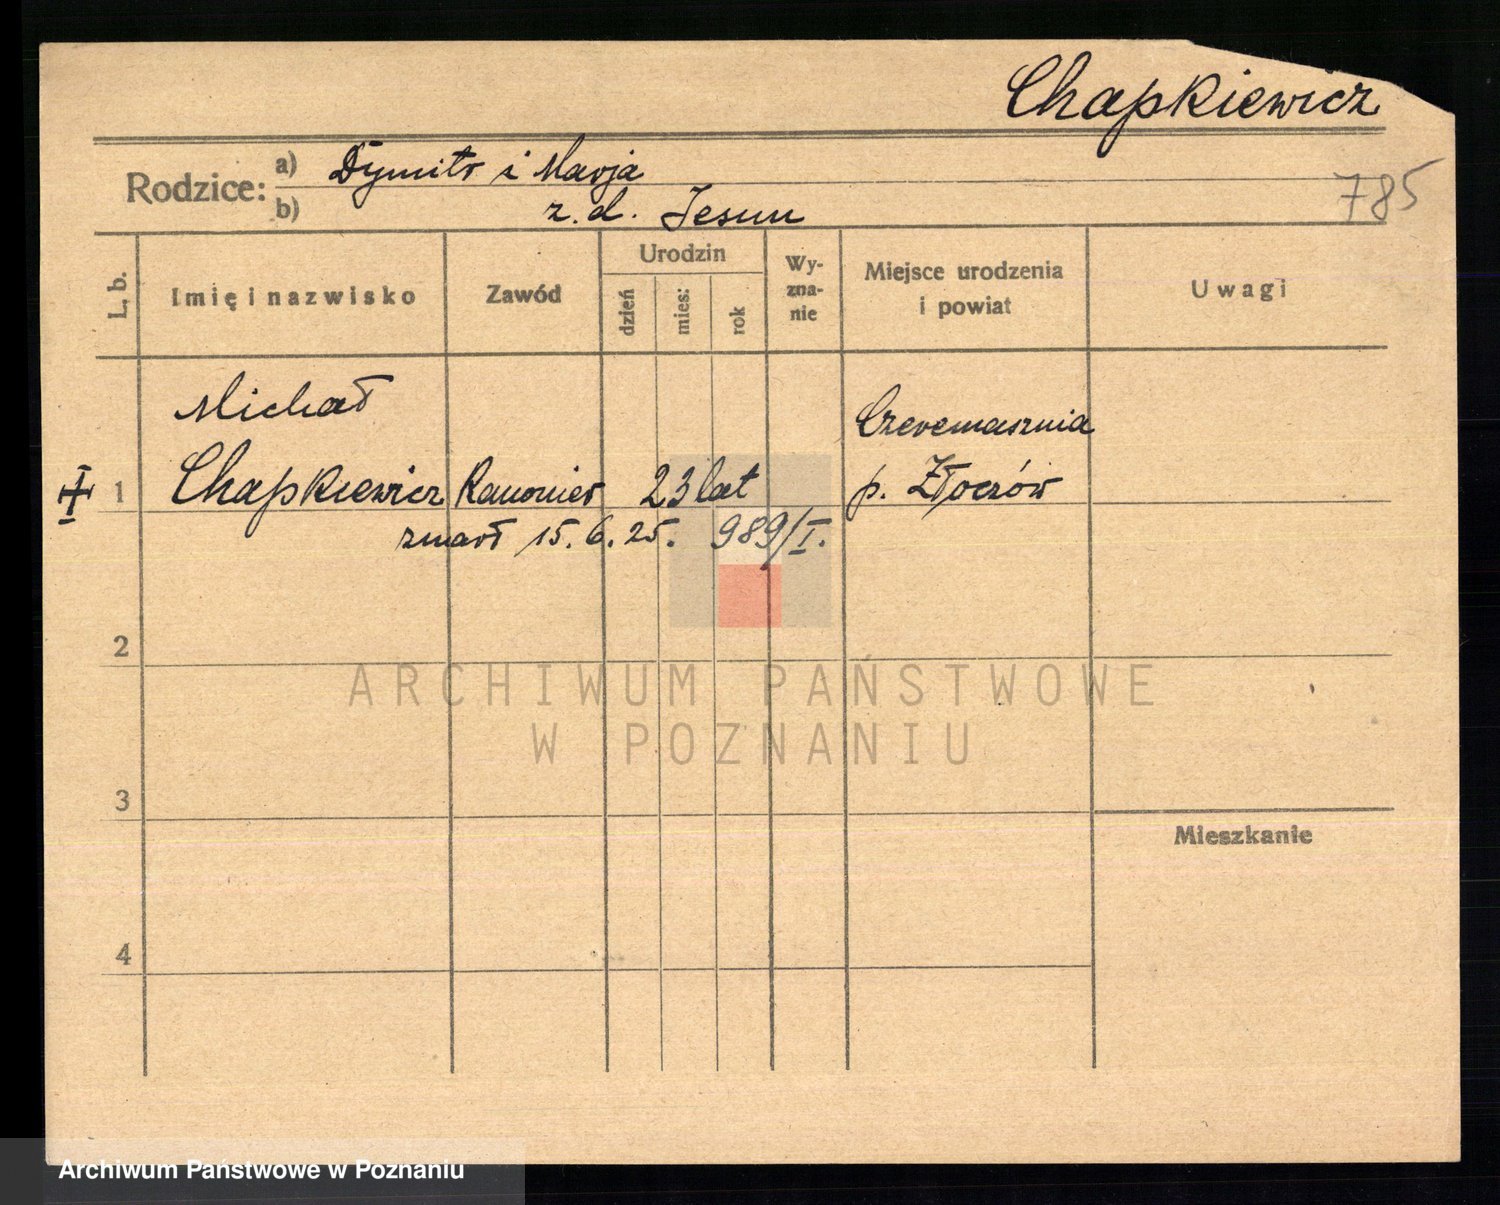 Chapkiewicz
Rodzice: a) Dymitr i Marja
b) z. d. Jesun
785
L. b. Imię i nazwisko Zawód Urodzin dzień mies: rok Wy-zna-nie Miejsce urodzenia i powiat Uwagi
Michał Czeremasznia
1 Chapkiewicz Kanonier 23 lat p. Złoczów
zmarł 15. 6. 25. 989/I.
2
ARCHIWUM PAŃSTWOWE
W POZNANIU
3
Mieszkanie
4
Archiwum Państwowe w Poznaniu